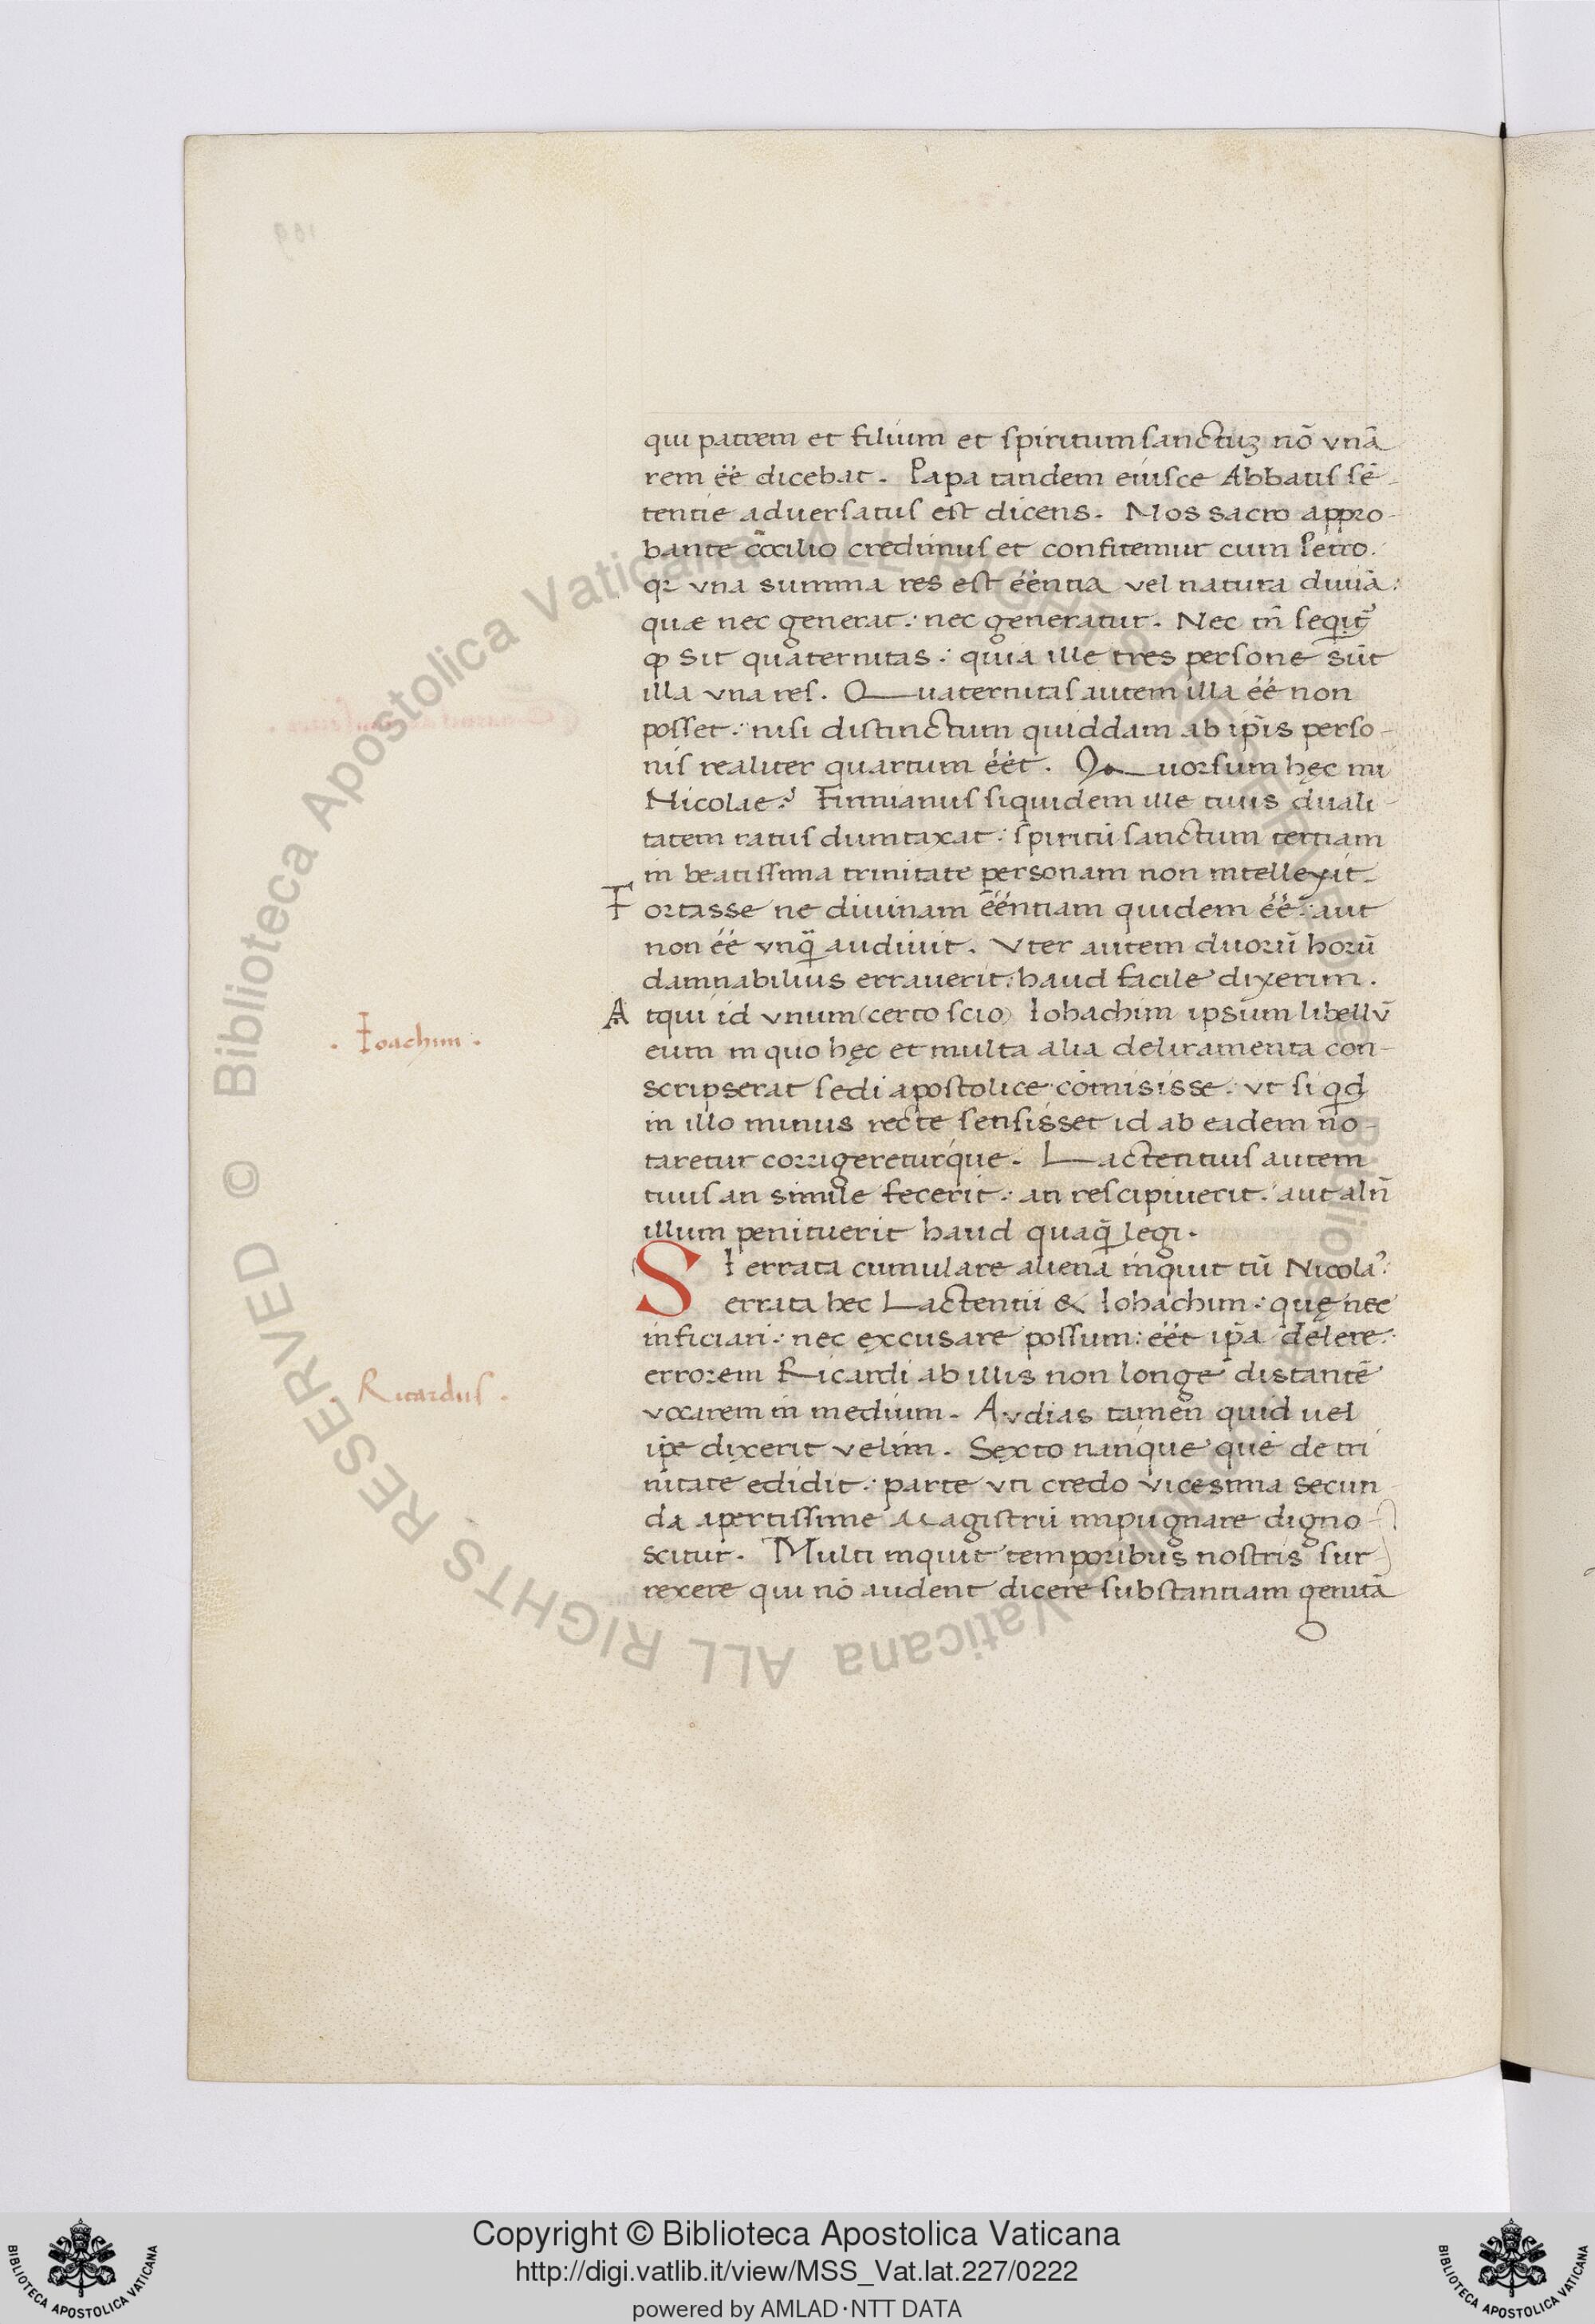 qui patrem et filium et spiritum sanctuꝫ nō vnā
rem ēē dicebat. Papa tandem eiusce Abbatis sē-
tentie adversatus est dicens. Nos sacro appro-
bante cōcilio credimus et confitemur cum Petro.
qꝛ vna summa res est ēēntia vel natura diuīa:
quæ nec generat: nec generatur. Nec tn̄ seqit᷑
ꝙ sit quaternitas: quia ille tres persone sūt
illa vna res. Quaternitas autem illa ēē non
posset: nisi distinctum quiddam ab ip̄is perso-
nis realiter quartum ēēt. Quorsum hęc mi
Nicolae? Firmianus siquidem ille tuus duali-
tatem ratus dumtaxat: spiritū sanctum tertiam
in beatissima trinitate personam non intellexit.
Fortasse ne diuinam ēēntiam quidem ēē: aut
non ēē vnq̄ audiuit. Vter autem duorū horū
damnabilius errauerit: haud facile dixerim.
Atqui id vnum (certo scio) Iohachim ipsum libellū
. Ioachim .
eum in quo hęc et multa alia deliramenta con-
scripserat sedi apostolice cōmisisse: vt si qd
in illo minus recte sensisset id ab eadem no-
taretur corrigereturque. Lactentius autem
tuus an simile fecerit: an rescipiuerit: aut alr̄
illum penituerit haud quaq̄ legi.
SI errata cumulare aliena inquit tū Nicola?
errata hec Lactentii & Iohachim: quę nec
inficiari: nec excusare possum: ēēt ip̄a delere:
errorem Ricardi ab illis non longe distantē
. Ricardus .
vocarem in medium. Avdias tamen quid uel
ip̄e dixerit velim. Sexto nanque quē de tri
nitate edidit: parte vti credo vicesima secun
da apertissime Magistrū impugnare digno-
scitur. Multi inquit temporibus nostris sur
rexere qui nō audent dicere substantiam genitā
Copyright © Biblioteca Apostolica Vaticana
http://digi.vatlib.it/view/MSS_Vat.lat.227/0222
powered by AMLAD·NTT DATA
BIBLIOTECA APOSTOLICA VATICANA
BIBLIOTECA APOSTOLICA VATICANA
© Biblioteca Apostolica Vaticana ALL RIGHTS RESERVED © Biblioteca Apostolica Vaticana ALL RIGHTS RESERVED